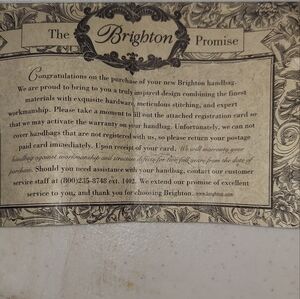 The Brighton Promise
Congratulations on the purchase of your new Brighton handbag.
We are proud to bring to you a truly inspired design combining the finest
materials with exquisite hardware, meticulous stitching, and expert
workmanship. Please take a moment to fill out the attached registration card so
that we may activate the warranty on your handbag. Unfortunately, we can not
cover handbags that are not registered with us, so please return your postage
paid card immediately. Upon receipt of your card, We will warranty your
handbag against workmanship and structure defects for two full years from the date of
purchase. Should you need assistance with your handbag, contact our customer
service staff at (800)235-8748 ext. 1402. We extend our promise of excellent
service to you, and thank you for choosing Brighton. www.brighton.com